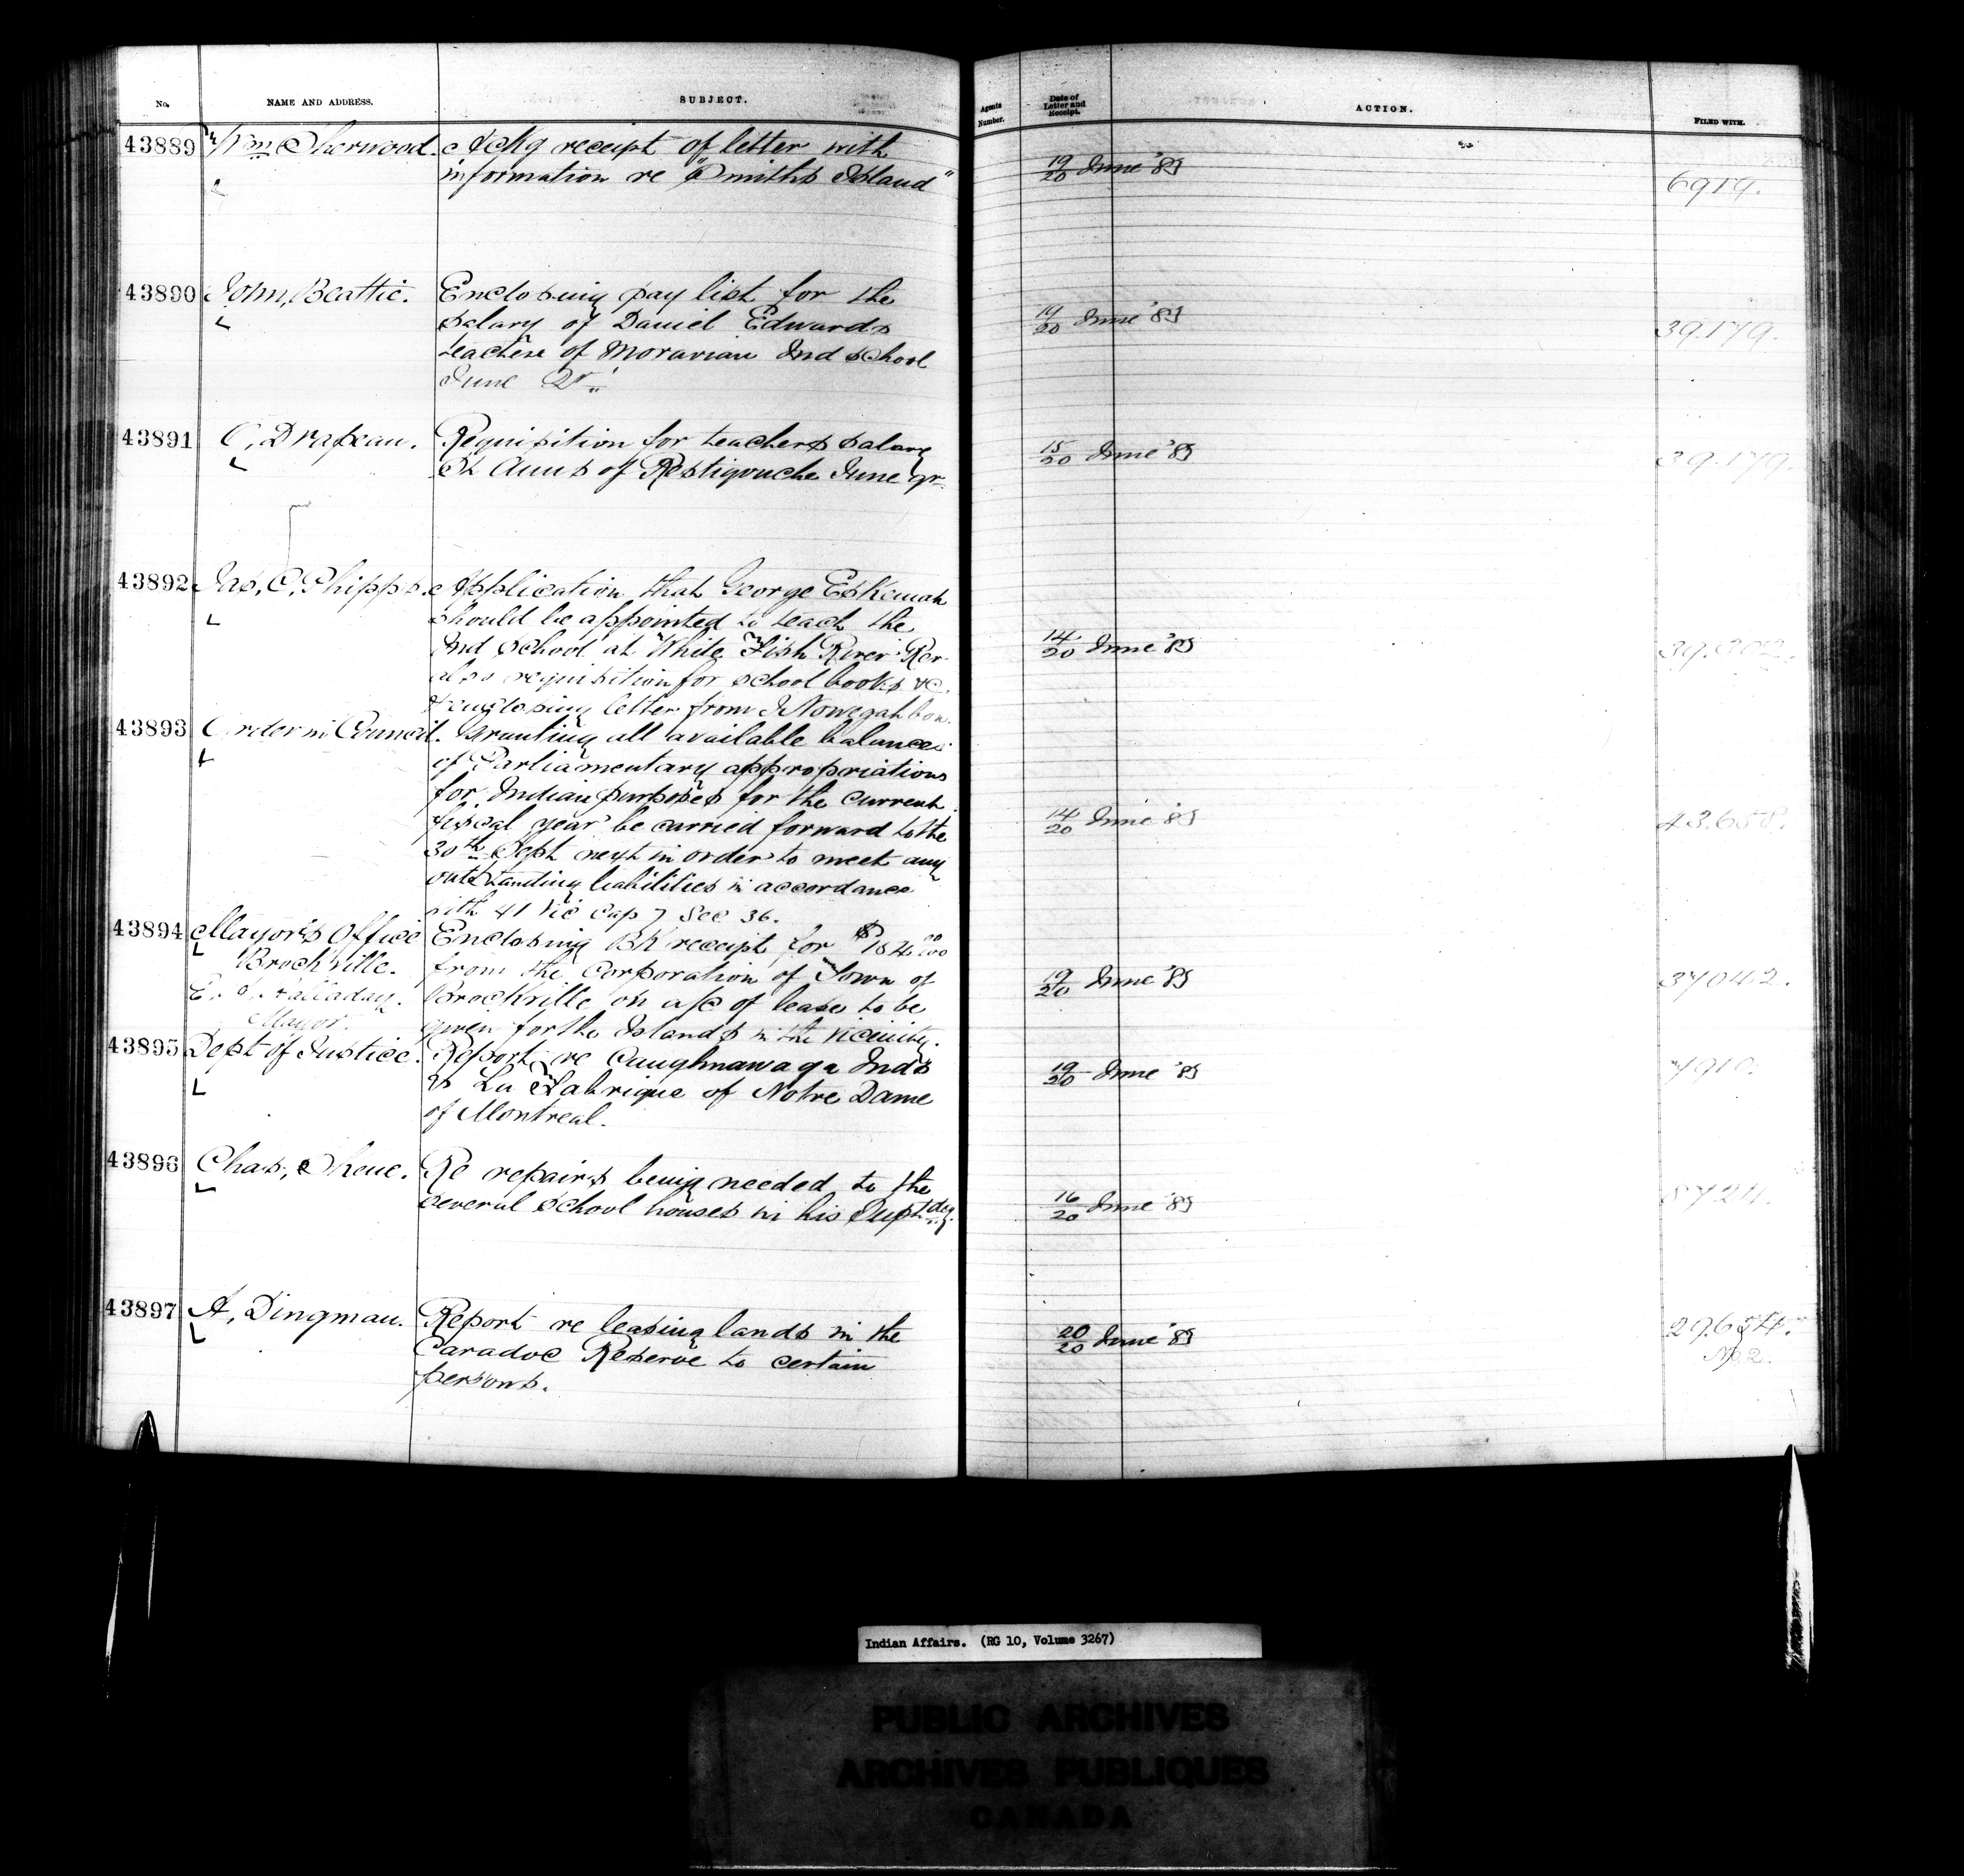 No. NAME AND ADDRESS. SUBJECT. Agents Number. Date of Letter and Receipt. ACTION. FILED WITH.
43889 Wm Sherwood. Ackg receipt of letter with
information re "Smiths Island" 19/20 June '83 6919.
43890 John, Beattie. Enclosing pay list for the
salary of Daniel Edwards 19/20 June '83 39.179.
teacher of Moravian Ind school
June Qr
43891 C, Drapeau. Requisition for teachers salary 15/20 June '83
St Anns of Restigouche June qr. 39.179.
43892 Jas, C, Phipps. Application that George Eskemah
should be appointed to teach the
Ind School at White Fish River Rer 14/20 June '83 39.302.
also requisition for school books &c.
& enclosing letter from
43893 Order in Council. Granting all available balances
of Parliamentary appropriations
for Indian purposes for the current
fiscal year be carried forward to the 14/20 June '83 43.658.
30th Sept next in order to meet any
outstanding liabilities in accordance
with 41 Vic Cap 7 Sec 36.
43894 Mayor's Office Enclosing Bk receipt for
Brockville. from the Corporation of Town of 19/20 June '83 37042.
Brockville on a/c of lease to be
Mayor. given for the Islands in the vicinity.
43895 Dept of Justice. Report re Caughnawaga Inds 19/20 June '83 7910.
vs La Fabrique of Notre Dame
of Montreal.
43896 Chas, Skene. Re repairs being needed to the
several school houses in his Suptdcy. 16/20 June '83
43897 A, Dingman. Report re leasing lands in the 20/20 June '83 29.654.
Caradoc Reserve to certain No 2.
persons.
Indian Affairs. (RG 10, Volume 3267)
PUBLIC ARCHIVES
ARCHIVES PUBLIQUES
CANADA